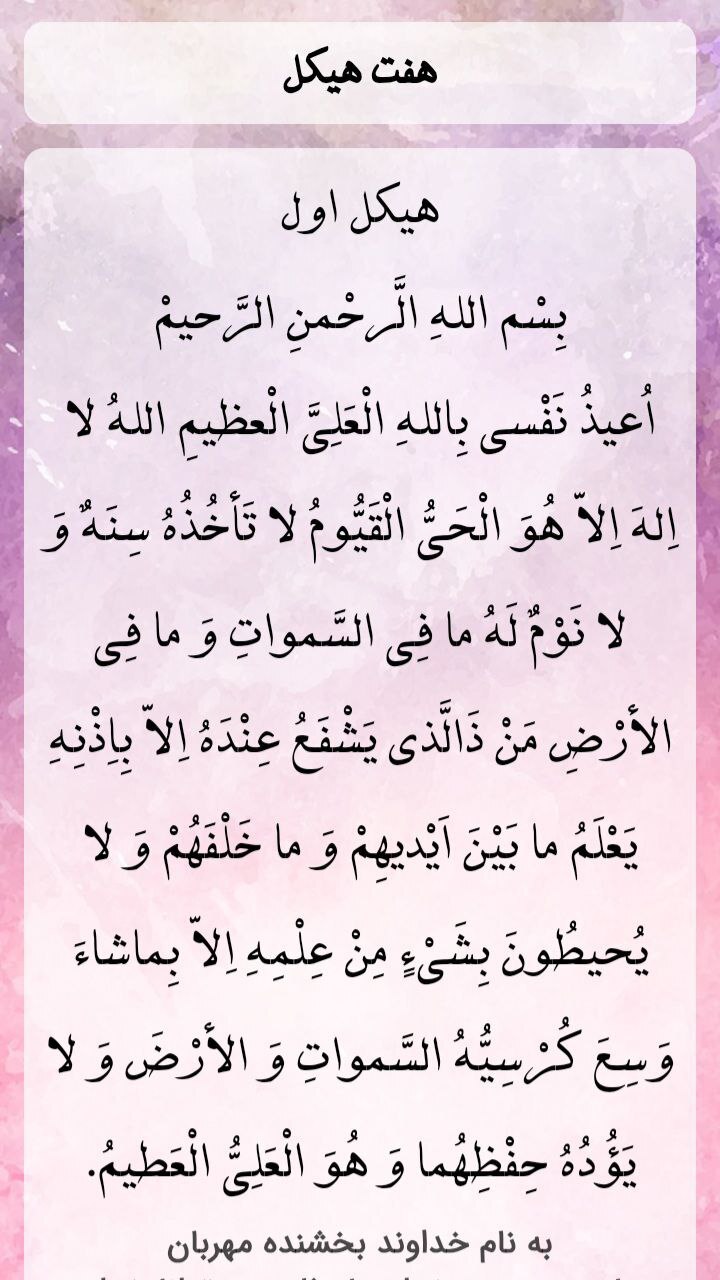 هفت هیکل
هیکل اول
بِسْم اللهِ الَّرحْمنِ الرَّحیمْ
اُعیذُ نَفْسی بِاللهِ الْعَلِیَّ الْعظیمِ اللهُ لا
اِلهَ اِلاّ هُوَ الْحَیُّ الْقَیُّومُ لا تَأخُذُهُ سِنَهٌ وَ
لا نَوْمٌ لَهُ ما فِی السَّمواتِ وَ ما فِی
الأرْضِ مَنْ ذَالَّذی یَشْفَعُ عِنْدَهُ اِلاّ بِاِذْنِهِ
یَعْلَمُ ما بَیْنَ اَیْدیهِمْ وَ ما خَلْفَهُمْ وَ لا
یُحیطُونَ بِشَیْءٍ مِنْ عِلْمِهِ اِلاّ بِماشاءَ
وَسِعَ کُرْسِیُّهُ السَّمواتِ وَ الأرْضَ وَ لا
یَؤُدُهُ حِفْظِهُما وَ هُوَ الْعَلِیُّ الْعَطیمُ.
به نام خداوند بخشنده مهربان